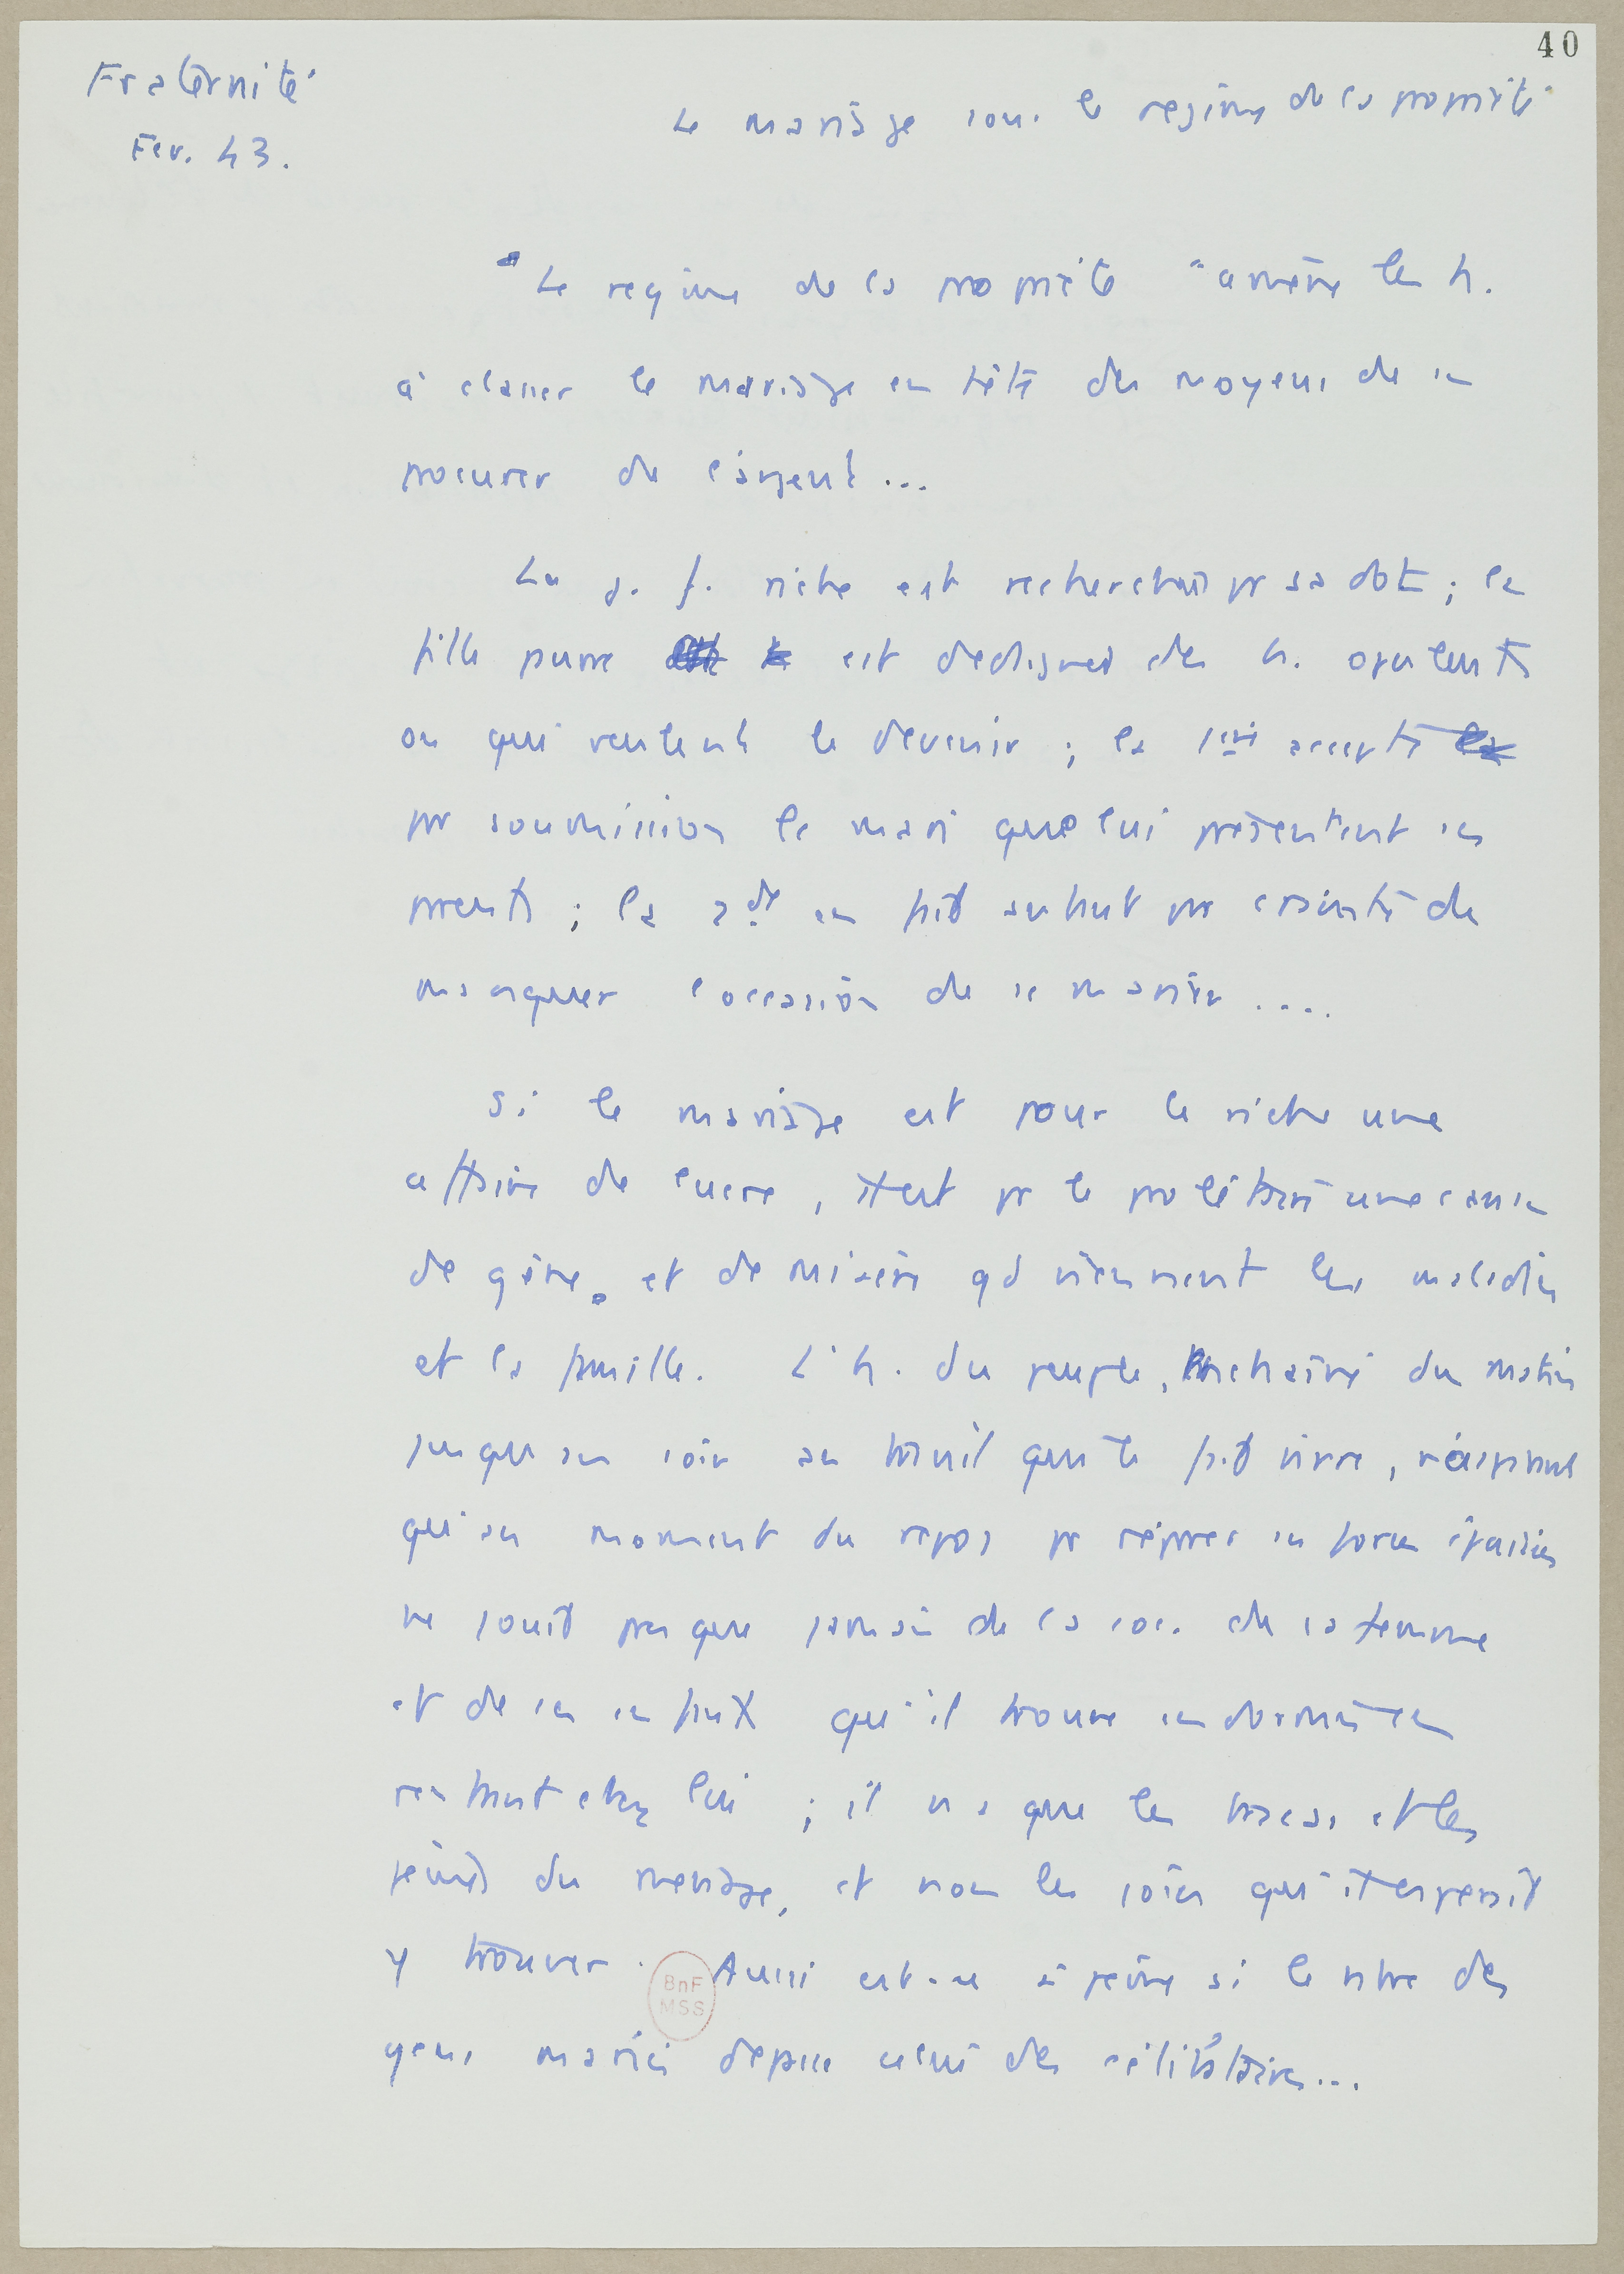 40
Fraternité
Fev. 43.
Le mariage sous le régime de la propriété
Le regime de la propriété "amène les h.
à classer le mariage en tête des moyens de se
procurer de l'argent ...
La j. f. riche est recherchée pr sa dot ; la
fille pauvre est dédaignée des h. opulents
ou qui veulent le devenir ; la 1ère accepte
pr soumission le mari que lui présentent ses
parents ; la 2de en fait autant pr crainte de
manquer l'occasion de se marier ....
Si le mariage est pour le riche une
affaire de lucre, il est pr le prolétaire une cause
de gêne et de misère qd viennent les maladies
et la famille. L'h. du peuple, enchaîné du matin
jusqu'au soir au travail qui le fait vivre,
qu'au moment du repos pr réparer ses forces épuisées
ne jouit presque jamais de la soc. de sa femme
et de ses enfants qu'il trouve endormis en
rentrant chez lui ; il n'a que les tracas et les
peines du ménage, et non les joies qu'il en pensait
y trouver. Aussi est-ce à peine si le nbre des
gens mariés dépasse celui des célibataires...
BnF
MSS